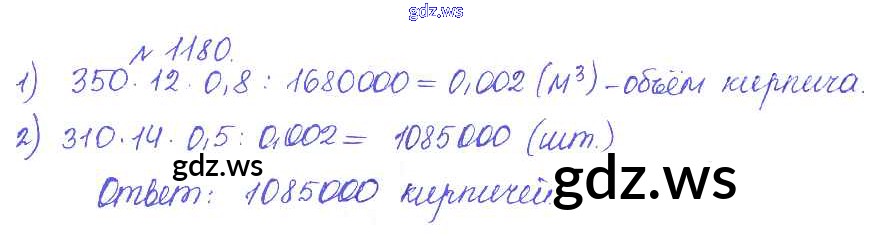 gdz.ws
№ 1180.
1) 350·12·0,8 : 1680000 = 0,002 (м³) – объём кирпича.
2) 310·14·0,5 : 0,002 = 1085000 (шт.)
gdz.ws
Ответ: 1085000 кирпичей.
gdz.ws